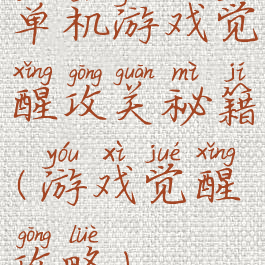 单机游戏觉
xǐng gōng guān mì jí
醒攻关秘籍
yóu xì jué xǐng
(游戏觉醒
gōng lüè
攻略)